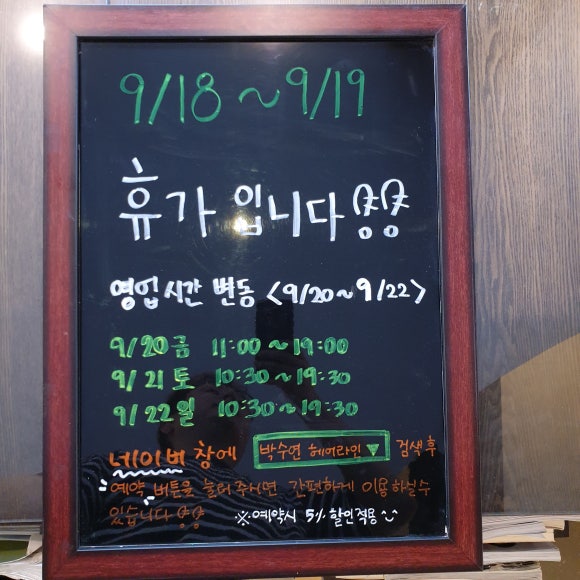 9/18 ~ 9/19
휴가 입니다  兌兌
영업 시간 변동 <9/20 ~ 9/22>
9/20 금 11:00 ~ 19:00
9/21 토 10:30 ~ 19:30
9/22 일 10:30 ~ 19:30
네이버 창에 박수연 헤어라인 ▼ 검색 후
"예약" 버튼을 눌러 주시면 간편하게 이용하실수
있습니다
※예약시 5% 할인적용